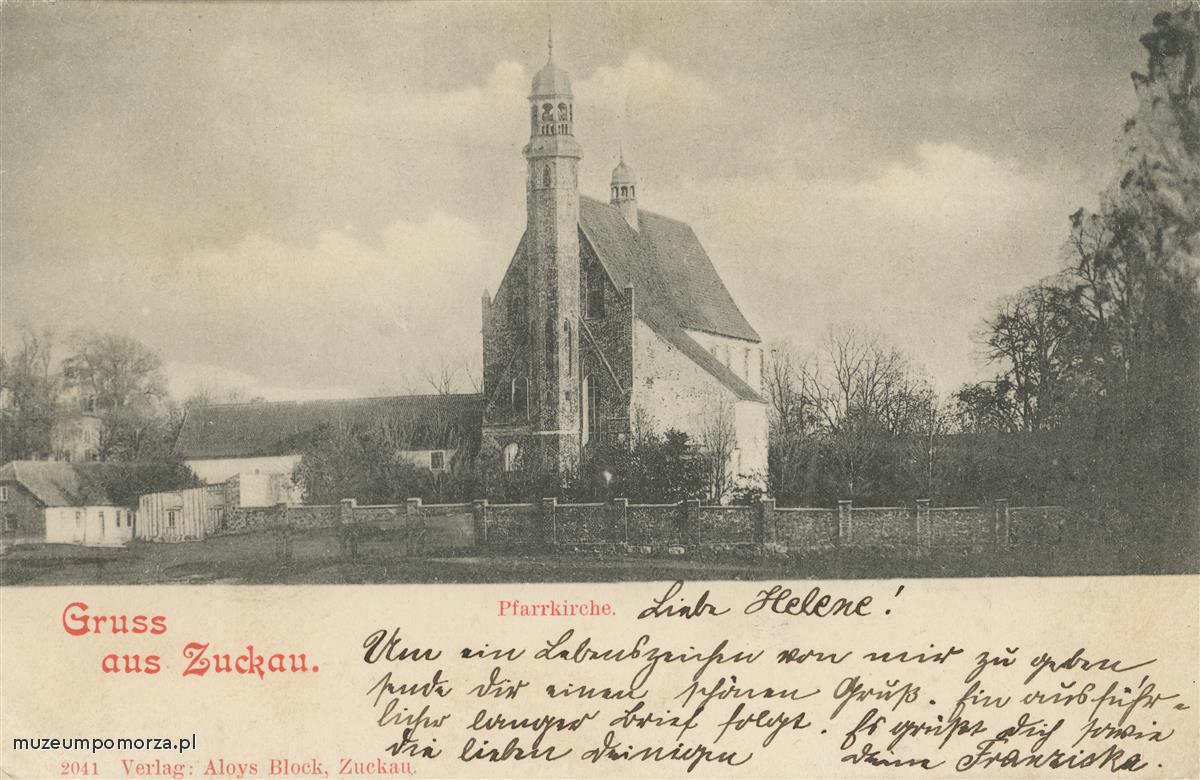 Pfarrkirche.
Gruss
aus Zuckau.
Liebe Helene!
Um ein Lebenszeichen von mir zu geben
sende Dir einen schönen Gruß. Ein ausführ-
licher langer Brief folgt. Es grüßt Dich sowie
die lieben Deinigen Deine Franziska.
muzeumpomorza.pl
2041 Verlag: Aloys Block, Zuckau.